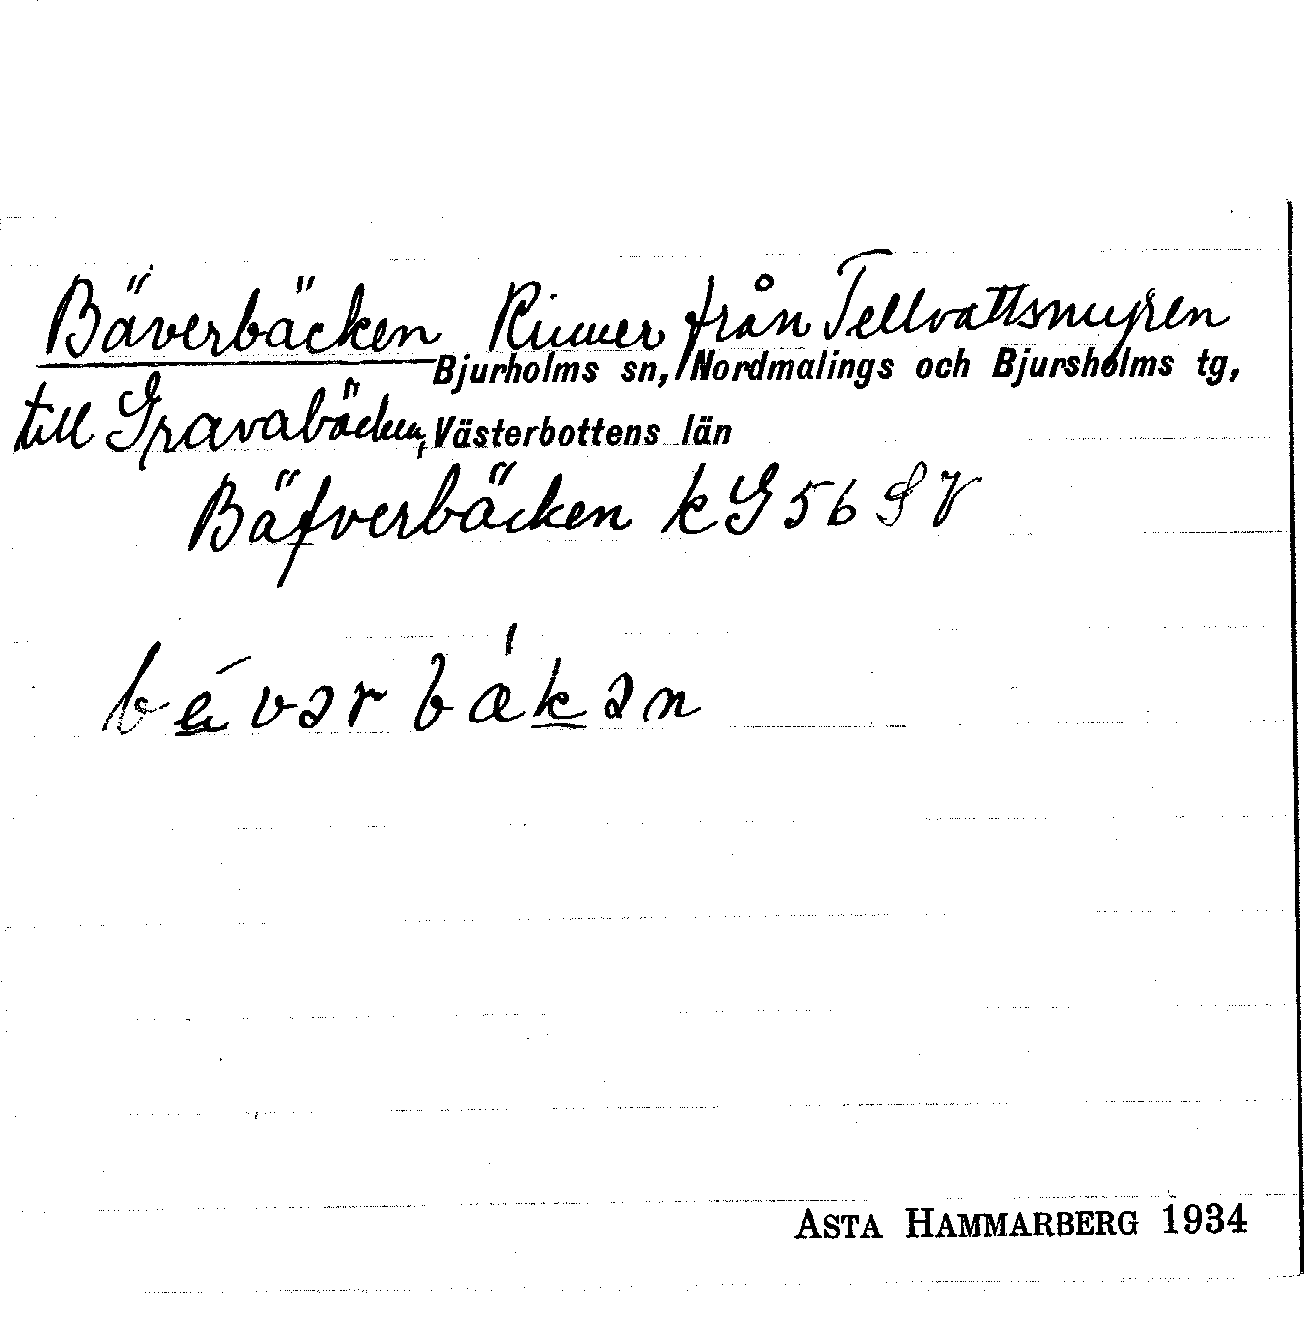 Bäverbäcken Rinner från Tellvattsmyren
Bjurholms sn, Nordmalings och Bjursholms tg,
till Gravabäcken, Västerbottens län
Bäfverbäcken kG 56 SV
bévərbäkən
ASTA HAMMARBERG 1934